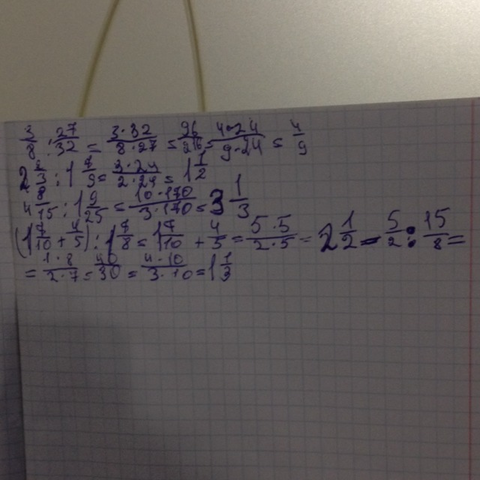 3/8 : 27/32 = 3·32/8·27 = 96/216 = 4·24/9·24 = 4/9
2 2/3 : 1 7/9 = 3·24/2·24 = 1 1/2
4 8/15 : 1 9/25 = 10·170/3·170 = 3 1/3
(1 7/10 + 4/5) : 1 7/8 = 1 7/10 + 4/5 = 5·5/2·5 = 2 1/2 = 5/2 : 15/8 =
= 1·8/2·7 = 40/30 = 4·10/3·10 = 1 1/3